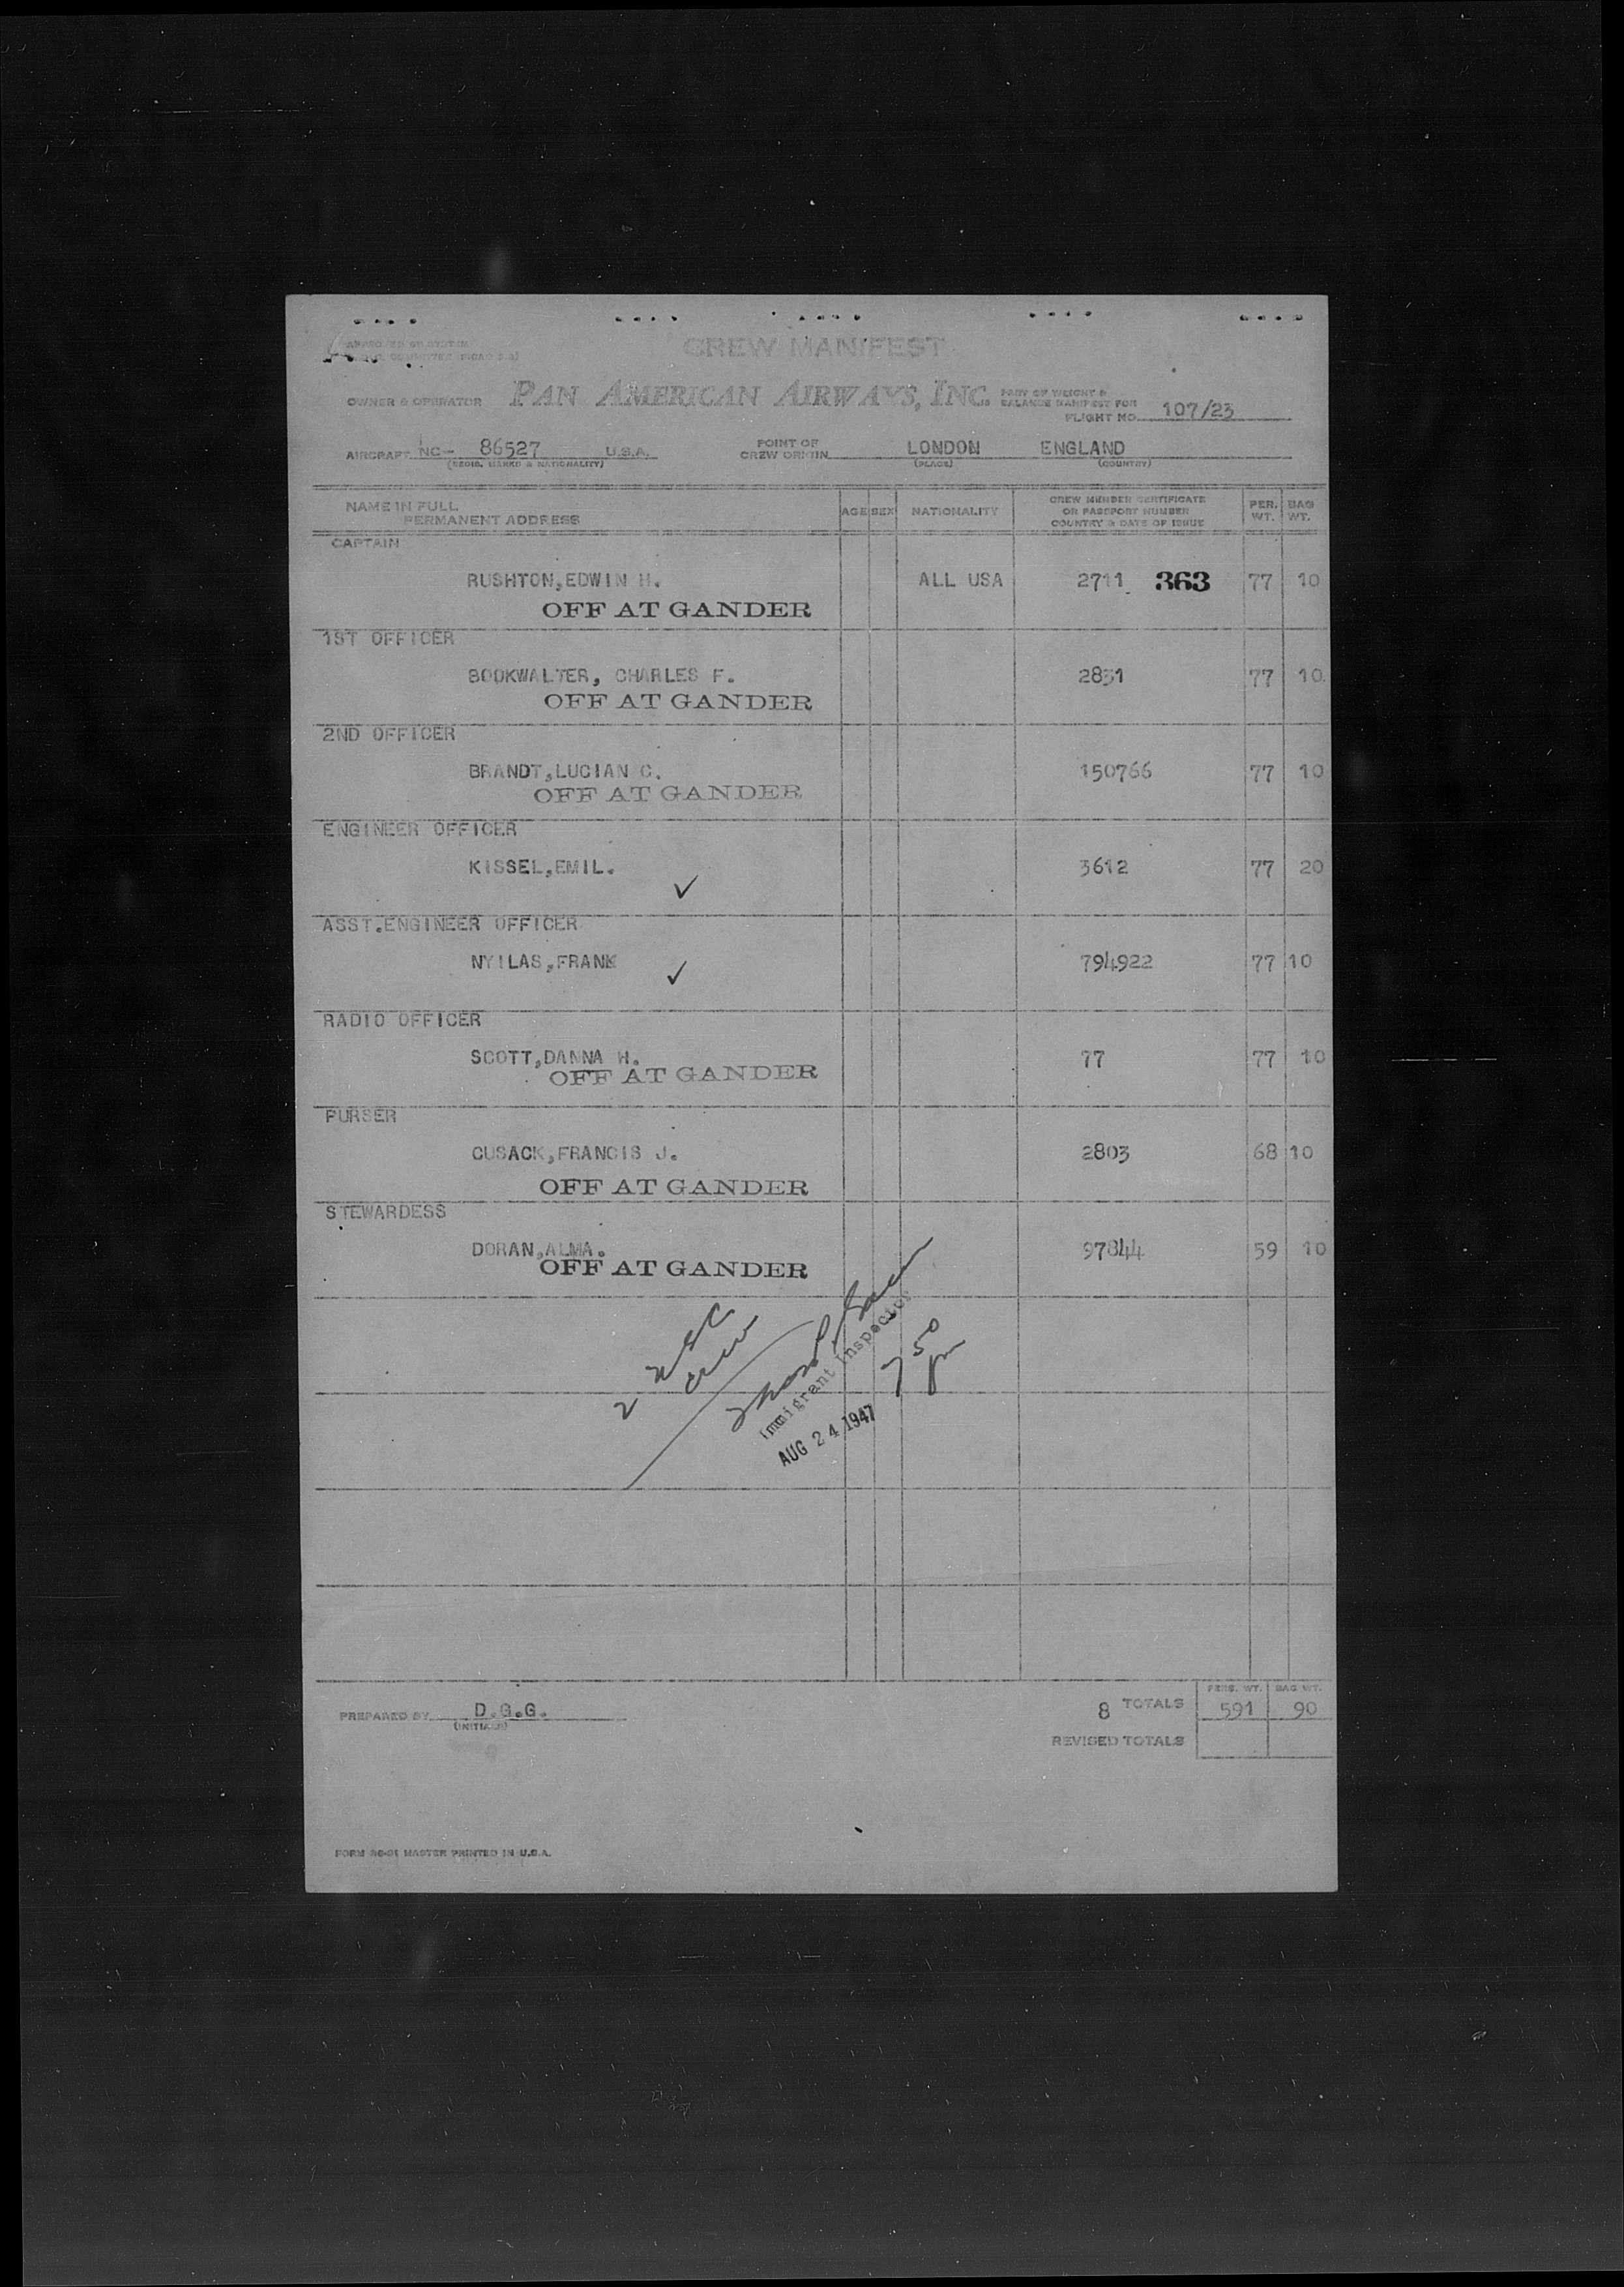 CREW MANIFEST
OWNER & OPERATOR PAN AMERICAN AIRWAYS, INC. PART OF WEIGHT &
BALANCE MANIFEST FOR
FLIGHT NO. 107/23
AIRCRAFT NC- 86527 U.S.A. POINT OF
CREW ORIGIN LONDON ENGLAND
(REGIS. MARKS & NATIONALITY) (PLACE) (COUNTRY)
NAME IN FULL
PERMANENT ADDRESS
AGE SEX NATIONALITY
CREW MEMBER CERTIFICATE
OR PASSPORT NUMBER
COUNTRY & DATE OF ISSUE
PER. WT. BAG WT.
CAPTAIN
RUSHTON,EDWIN H. ALL USA 2711 363 77 10
OFF AT GANDER
1ST OFFICER
BOOKWALTER, CHARLES F. 2831 77 10
OFF AT GANDER
2ND OFFICER
BRANDT,LUCIAN C. 150766 77 10
OFF AT GANDER
ENGINEER OFFICER
KISSEL,EMIL. 3612 77 20
✓
ASST.ENGINEER OFFICER
NYILAS,FRANK ✓ 794922 77 10
RADIO OFFICER
SCOTT,DANNA H. 77 77 10
OFF AT GANDER
PURSER
CUSACK,FRANCIS J. 2803 68 10
OFF AT GANDER
STEWARDESS
DORAN,ALMA. 97844 59 10
OFF AT GANDER
2 USC
crew
Immigrant Inspector
7 50
pm
AUG 24 1947
PREPARED BY D.G.G.
(INITIALS)
8 TOTALS PERS. WT. 591 BAG WT. 90
REVISED TOTALS
MASTER PRINTED IN U.S.A.